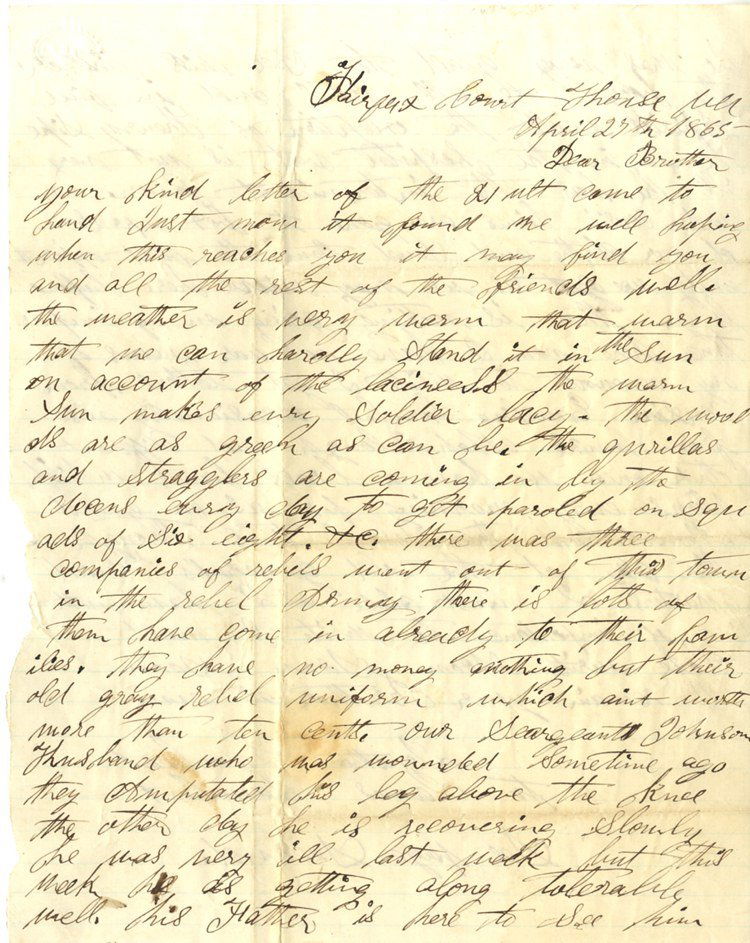 Fairfax Court House Va
April 27th 1865
Dear Brother
your kind letter of the 21 ult came to
hand Just now it found me well hoping
when this reaches you it may find you
and all the rest of the friends well.
the weather is very warm that warm
that we can hardly Stand it in the Sun
on account of the lacineess the warm
Sun makes evry Soldier lacy. the wood
ds are as green as can be. the gurillas
and stragglers are coming in by the
dozens evry day to get paroled on squ
ads of Six eight. &c. there was three
companies of rebels went out of this town
in the rebel Army there is lots of
them have come in already to their fam
ilies. they have no money nothing but their
old gray rebel uniform which aint worth
more than ten cents. our Seargeant Johnson
Husband who was wounded Sometime ago
they Amputated his leg above the knee
the other day he is recovering Slowly
he was very ill last week but this
week he is getting along tolerable
well. his Father is here to See him